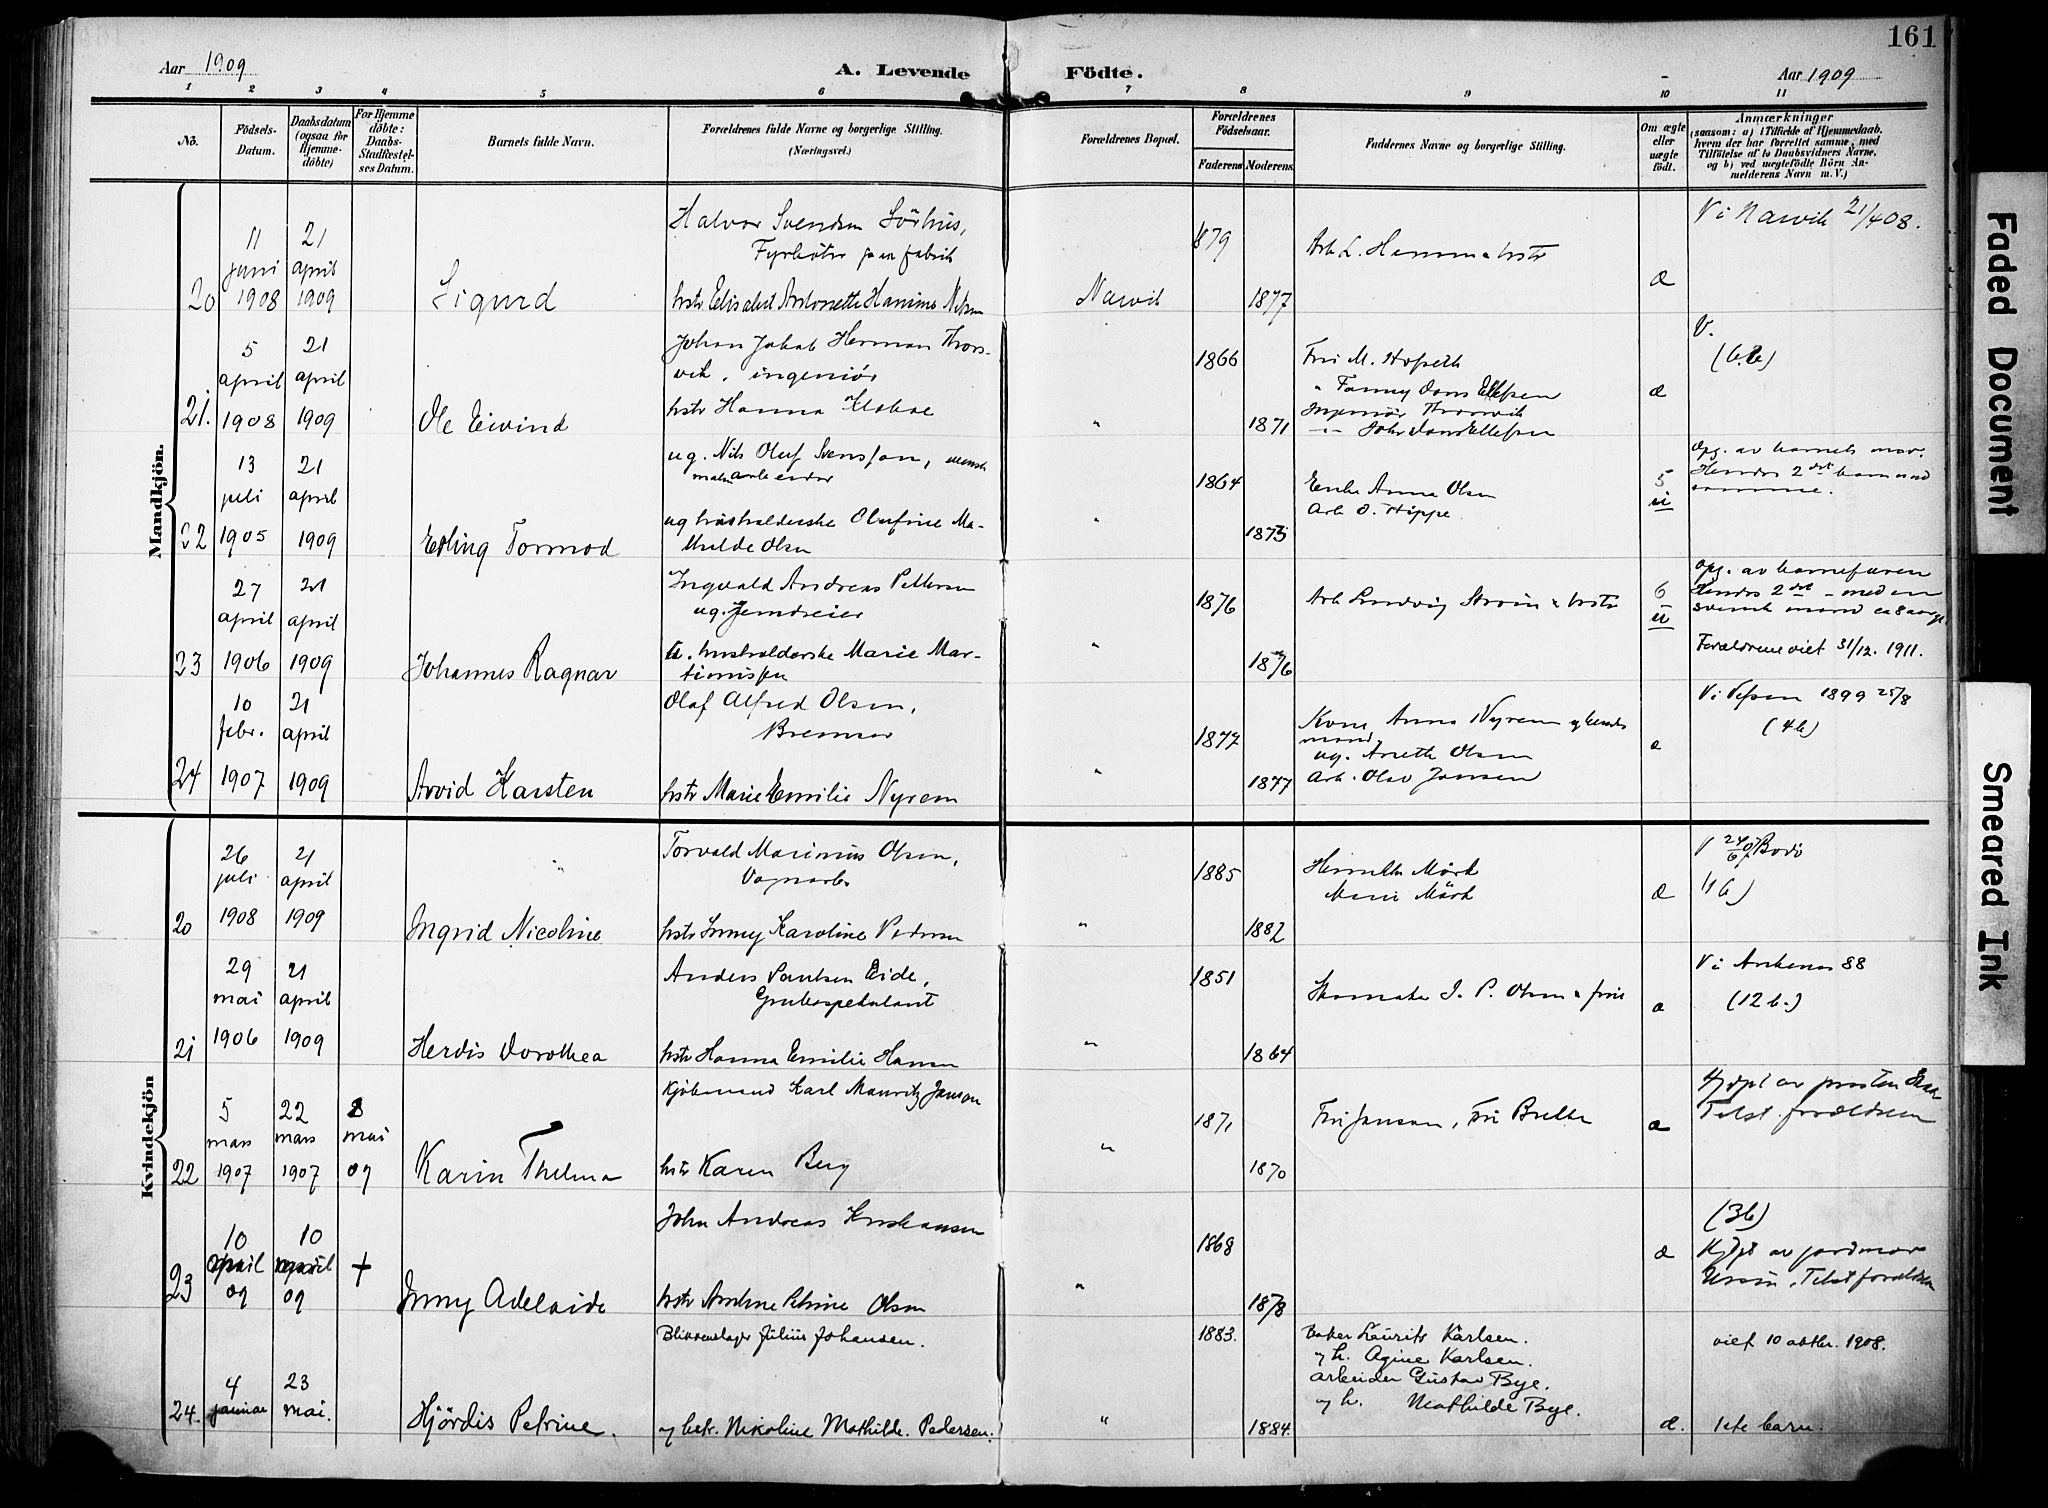 161
Aar 1909
A. Levende Födte.
Aar 1909
1 2 3 4 5 6 7 8 9 10 11
No.
Födsels-Datum.
Daabsdatum (ogsaa for Hjemme-döbte)
For Hjemme döbte: Daabs-Stadfæstel-ses Datum.
Barnets fulde Navn.
Forældrenes fulde Navne og borgerlige Stilling.
(Næringsvei.)
Forældrenes Bopæl.
Forældrenes Födselsaar.
Faderens Moderens
Faddernes Navne og borgerlige Stilling.
Om ægte eller uægte födt.
Anmærkninger
(saasom: a) i Tilfælde af Hjemmedaab.
hvem der har forrettet samme, med
Tilföielse af to Daabsvidners Navne.
og b) ved uægtefödte Börn An-
melderens Navn m.V.)
Mandkjön.
20 11 juni 1908 21 april 1909 Sigurd
Halvor Svendsen Sörhus,
Fyrböter paa fabrik
hstr Elisabet Antonette Hansine Nilsen
Narvik 1879 1877
Arb L. Hemma hstr
æ
V i Narvik 21/4 08.
21. 5 april 1908 21 april 1909 Ole Eivind
Johan Jakob Herman Thors-
vik, ingeniör
hstr Hanna Klaboe
" 1866 1871
Fru M. Hofseth
" Fanny Dons Ellefsen
Ingeniör Thorsvik
-"- John Dons Ellefsen
æ
V.
22 13 juli 1905 21 april 1909 Erling Tormod
ug. Nils Oluf Svensson, svensk
malmarbeider
ug husholderske Olufine Ma-
thilde Olsen
" 1864 1873
Enke Anna Olsen
Arb O. Hippe.
5 u
Opg. av barnets mor.
Hendes 2det barn med
samme.
23 27 april 1906 21 april 1909 Johannes Ragnar
Ingvald Andreas Pettersen
ug. Jerndreier
u. husholderske Marie Mar-
tinussen
" 1876 1876
Arb Ludvig Strøm & hstr
6 u
Opg. av barnefaren
Hendes 2det - med en
svensk mand ca 8 aar gl.
Forældrene viet 31/12. 1911.
24 10 febr. 1907 21 april 1909 Arvid Karsten
Olaf Alfred Olsen,
Bremser
hstr Marie Emilie Nyrem
" 1877 1877
Kone Anna Nyrem og hendes
mand
ug. Anette Olsen
Arb. Olav Jansen
æ
V i Vefsen 1899 25/8
(4b)
Kvindekjön
20 26 juli 1908 21 april 1909 Ingrid Nicoline
Torvald Marinius Olsen,
Vognarb
hstr Jenny Karoline Pedersen
" 1885 1882
Henrikke Mörk
Marie Mörk
æ
V 24/6 07 Bodö
(1b)
21 29 mai 1906 21 april 1909 Herdis Dorothea
Anders Paulsen Eide,
Grubespekulant
hstr Hanna Emilie Hansen
" 1851 1864
Skomaker J. P. Olsen & frue
æ
V i Ankenes 88
(12 b.)
22 5 mars 1907 22 mars 1907 8 mai 09 Karin Thelma
Kjöbmand Karl Mauritz Janson
hstr Karen Berg
" 1871 1870
Fru Janson, Fru Brekke
æ
Hjdpt av presten
Tilst. forældrene
23 10 april 09 10 april 09 + Jenny Adelaide
John Andreas Kristiansen
hstr Andrine Petrine Olsen
" 1868 1878
æ
(3b)
Hjdpt av jordmor
Tilst forældrene
24. 4 januar 23 mai. Hjördis Petrine.
Blikkenslager Julius Johansen.
og hstr. Nikoline Mathilde Pedersen.
" 1883. 1884.
Baker Laurits Karlsen.
og h. Agine Karlsen.
arbeider Gustav Bye.
og h. Mathilde Bye.
æ.
viet 10 oktbr. 1908.
1ste barn.
Faded Document
Smeared Ink